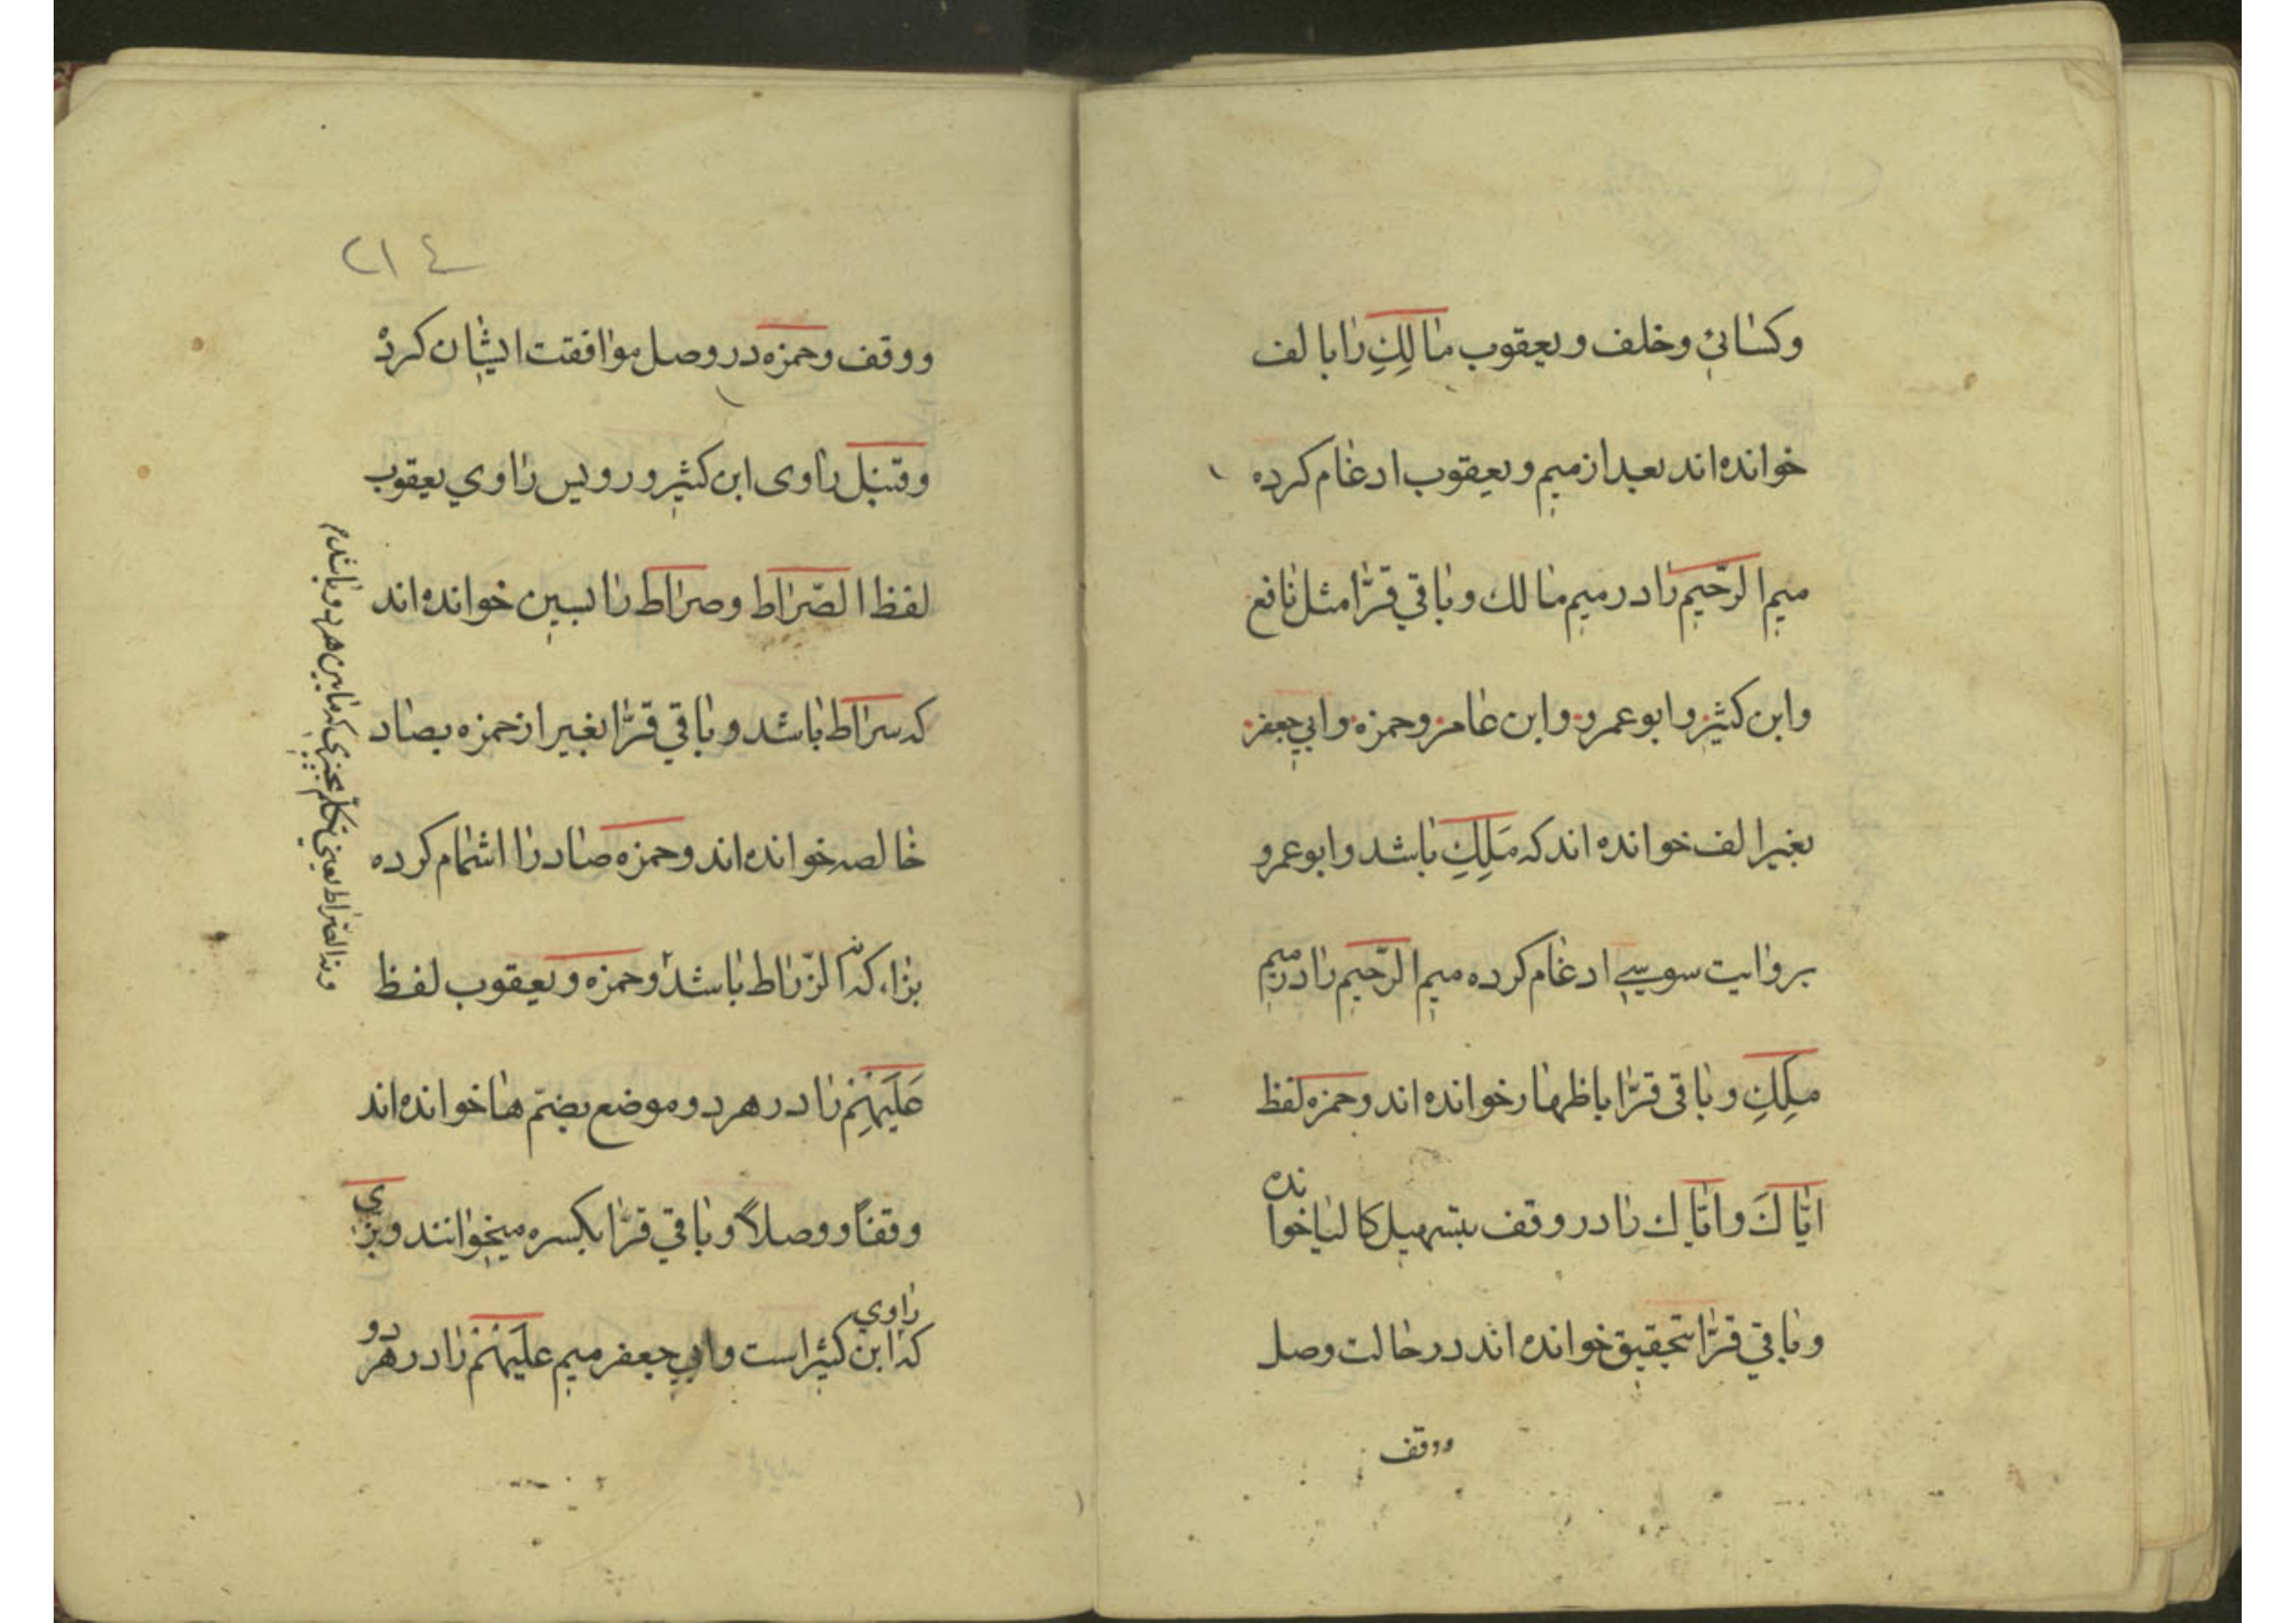 وکسائي وخلف ويعقوب مَالِكِ را بالف
خوانده اند بعد از ميم ويعقوب ادغام کرده
ميم الرّحيم را در ميم مالك وباقي قرّا مثل نافع
وابن کثير وابوعمرو وابن عامر وحمزه وابي جعفر
بغير الف خوانده اند که مَلِكِ باشد وابوعمرو
بروايت سوسي ادغام کرده ميم الرّحيم را در ميم
ملِكِ وباقی قرّا باظهار خوانده اند وحمزه لفظ
ايّاكَ وايّاك را در وقف بتسهيل کالياخوانده
وباقي قرّا بتحقيق خوانده اند در حالت وصل
ووقف
٢١٤
ووقف وحمزه در وصل موافقت ايشان کرد
وقنبل راوی ابن کثير ورويس راوي يعقوب
لفظ الصّراط وصراط را بسين خوانده اند
که سراط باشد وباقي قرّا بغير از حمزه بصاد
خالصه خوانده اند وحمزه صاد را اشمام کرده
بزاء که الزّراط باشد وحمزه ويعقوب لفظ
عَلَيْهِمْ را در هر دو موضع بضمّ ها خوانده اند
وقفًا ووصلاً وباقي قرّا بکسره ميخوانند وبزّي
که راوي ابن کثير است وابي جعفر ميم عَلَيْهِمْ را در هر دو